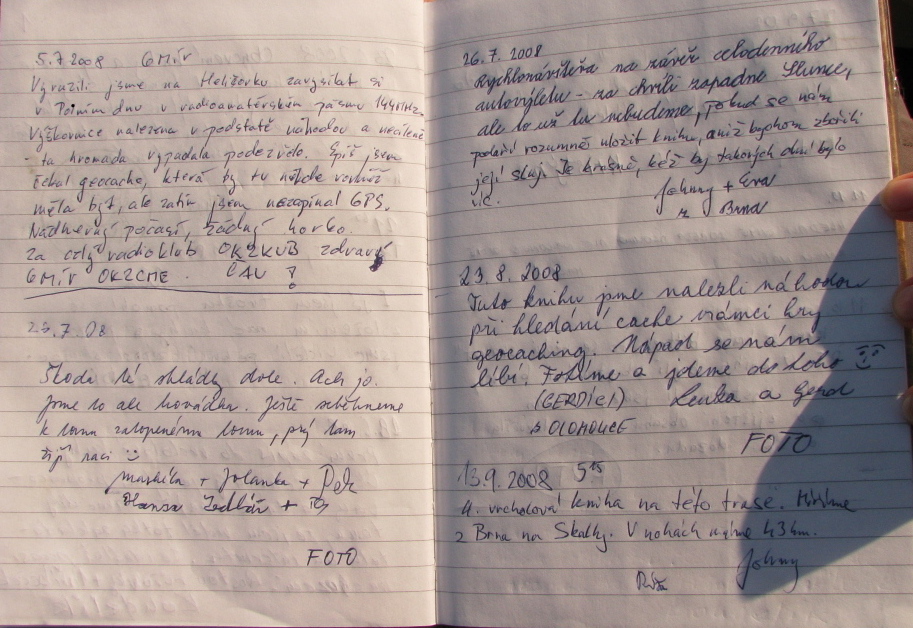 5.7.2008 GMÍR
Vyrazili jsme na Helišovku zavysílat si
v Polním dnu v radioamatérském pásmu 144MHz
Výškovnice nalezena v podstatě náhodou a necíleně
ta hromada vypadala podezřele. Spíš jsem
čekal geocache, která by tu někde
měla být, ale zatím jsem nezapínal GPS.
Nádherný počasí, žádný horko.
Za celý radioklub OK2KUB zdraví
GMÍR OK2CME. ČAU!
23.7.08
Škoda té skládky dole. Ach jo.
Jsme to ale hovádka. Ještě seběhneme
k tomu zatopenému lomu, prý tam
žijí raci
+ Jolanka +
FOTO
26.7.2008
Rychlonávštěva na závěr celodenního
autovýletu - za chvíli zapadne Slunce,
ale to už tu nebudeme, pokud se nám
podaří rozumně uložit knihu, aniž bychom zbořili
její skrýš. Je krásně, kéž by takových dní bylo
víc.
Johny + Eva
z Brna
23.8.2008
Tuto knihu jsme nalezli náhodou
při hledání cache v rámci hry
geocaching. Nápad se nám
líbí. Fotíme a jdeme do toho
(GERDICI) Lenka a Gerd
z OLOMOUCE
FOTO
13.9.2008 5¹⁵
4. vrcholová kniha na této trase. Míříme
z Brna na Skalky. V nohách máme 43 km.
Johny